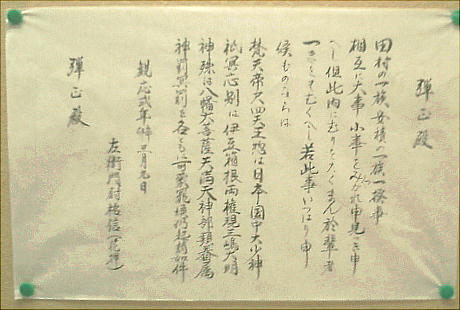 弾正殿
田村の一族安積の一族一揆事
相互に大事小事をみつかれ申見つき申
へし但此内にむりをたくまん於輩者
一きをそむくへし若此事いつはり申
候ものならは
梵天帝尺四天王惣は日本国中大小神
祇冥応別は伊豆箱根両権現三嶋大明
神殊は八幡大菩薩天満大神部類眷属
神罰冥罰を各も可蒙罷候仍起請如件
観応弐年 月九日
左衛門尉祐信(花押)
弾正殿